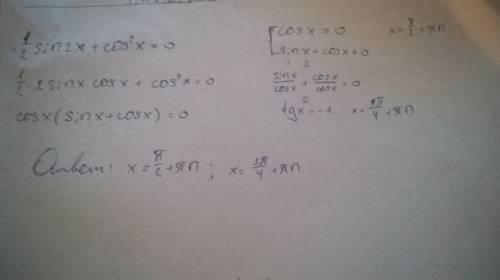 1/2 sin2x + cos²x = 0
1/2 · 2sinx cosx + cos²x = 0
cosx(sinx + cosx) = 0
[cosx = 0 x = π/2 + πn
[sinx + cosx = 0
sinx/cosx + cosx/cosx = 0
tgx = -1 x = 3π/4 + πn
Ответ: x = π/2 + πn ; x = 3π/4 + πn